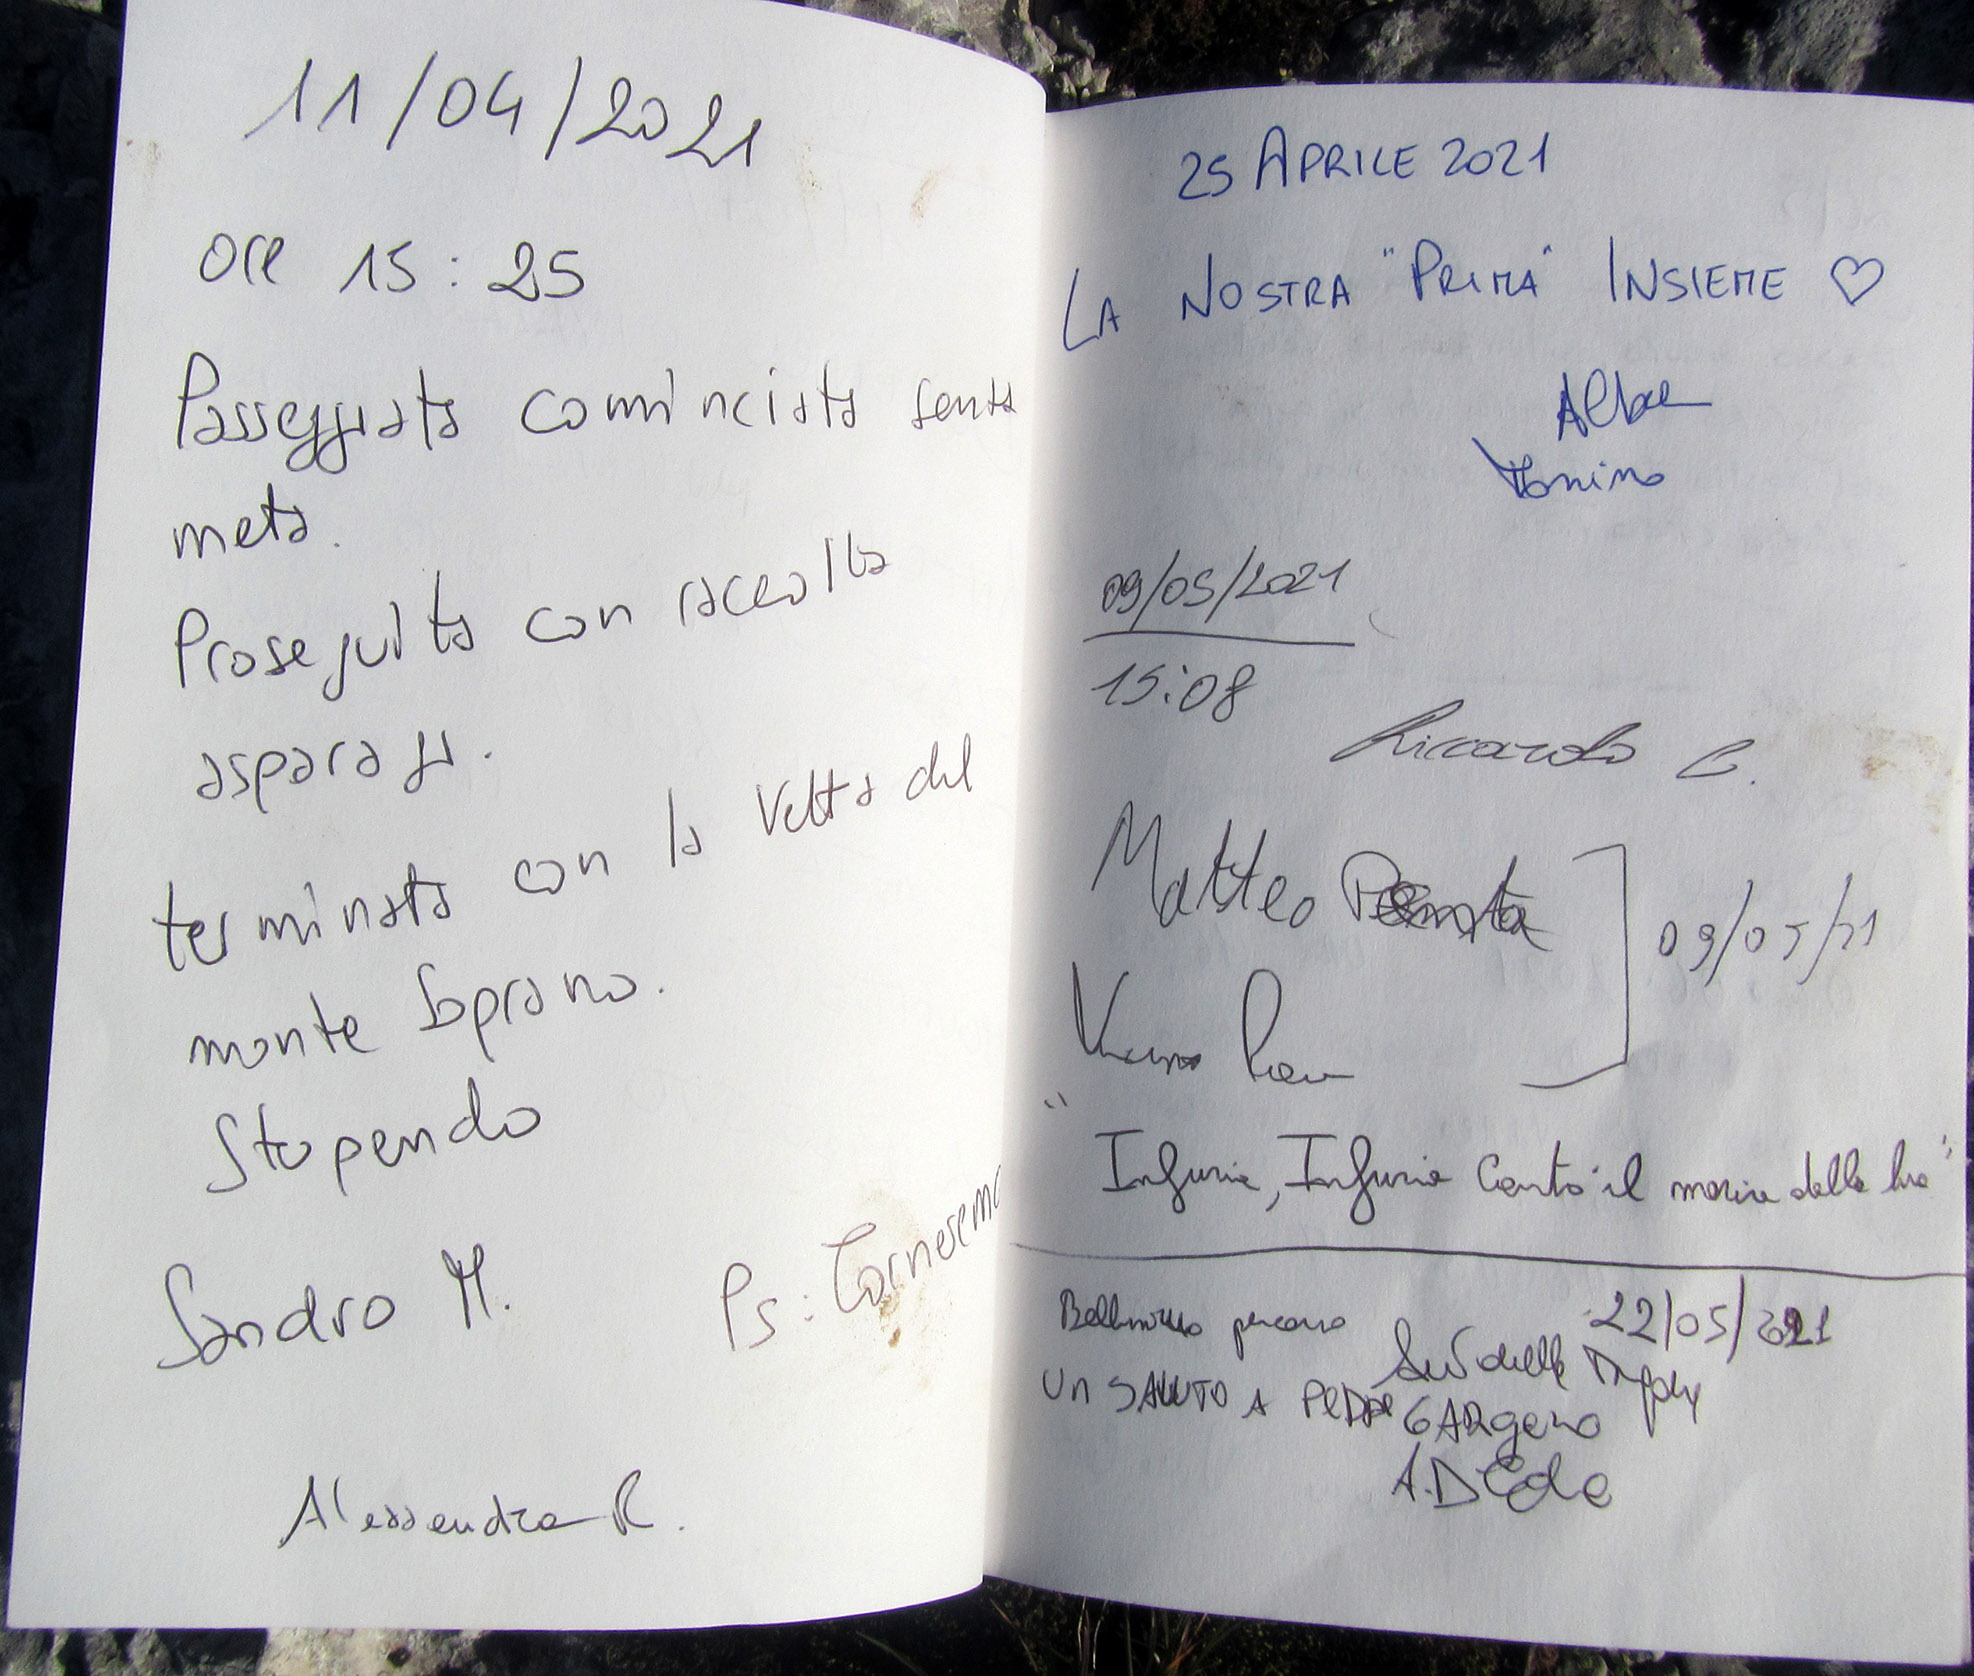 11/04/2021
ore 15:25
Passeggiata cominciata senza
meta.
Proseguita con raccolta
asparagi.
terminata con la vetta del
monte Soprano.
Stupendo
Sandro M.
Ps: Torneremo
Alessandra R.
25 APRILE 2021
LA NOSTRA "PRIMA" INSIEME ♡
Alba
Tonino
09/05/2021
15:08
Riccardo C.
Matteo
09/05/21
"Infuria, Infuria Contro il morire della luce"
22/05/2021
Bellissimo percorso
UN SALUTO A
GARgeno